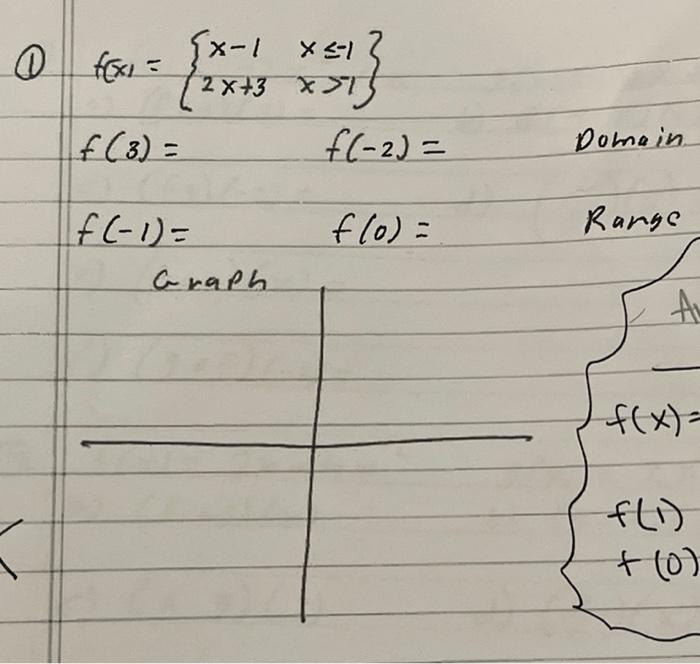 ① f(x) = {x-1 x≤-1
2x+3 x>-1}
f(3) = f(-2) = Domain
f(-1) = f(0) = Range
Graph
f(x)=
f(1)
f(0)